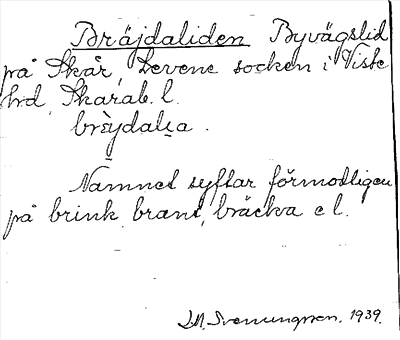 Bräjdaliden Byvägslid
på Skår, Levene socken i Viste
hrd, Skarab. l.
brèydalıa.
Namnet syftar förmodligen
på brink, brant, bräcka e l.
J.M. Svenungsson. 1939.